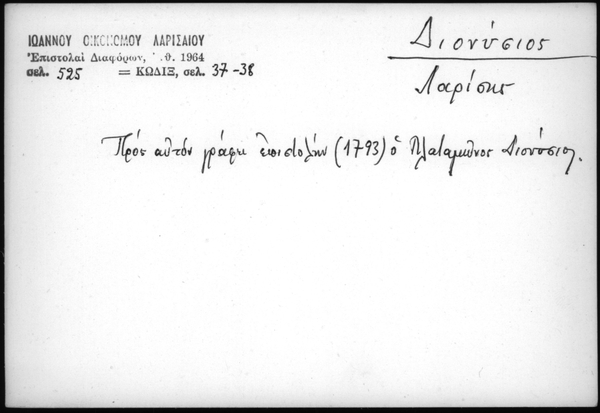 ΙΩΑΝΝΟΥ ΟΙΚΟΝΟΜΟΥ ΛΑΡΙΣΑΙΟΥ
Ἐπιστολαὶ Διαφόρων, 1964
σελ. 525 = ΚΩΔΙΞ, σελ. 37-38
Διονύσιος
Λαρίσης
Πρὸς αὐτὸν γράφει ἐπιστολήν (1793) ὁ Πλαταμῶνος Διονύσιος.